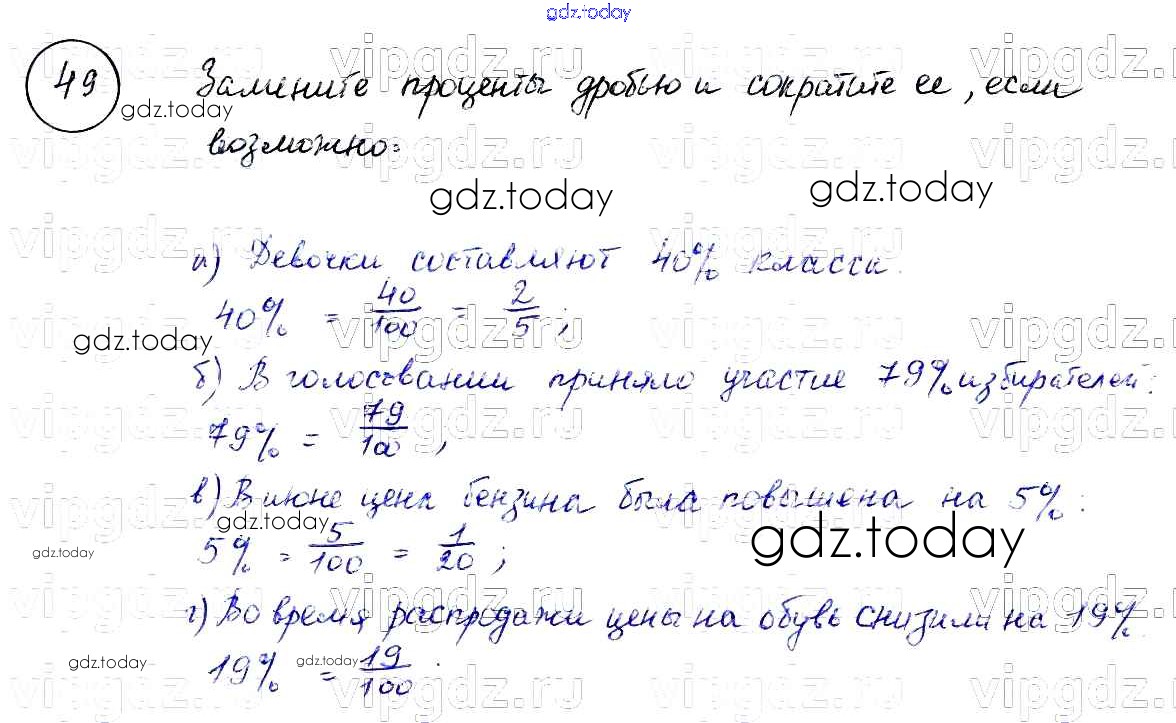 gdz.today
49 Замените проценты дробью и сократите ее, если
возможно:
gdz.today
gdz.today gdz.today
а) Девочки составляют 40% класса.
40% = 40/100 = 2/5;
gdz.today
б) В голосовании приняло участие 79% избирателей:
79% = 79/100,
в) В июне цена бензина была повышена на 5%:
gdz.today
gdz.today
gdz.today
5% = 5/100 = 1/20;
г) Во время распродажи цены на обувь снизили на 19%.
gdz.today
gdz.today
19% = 19/100.
vipgdz.ru